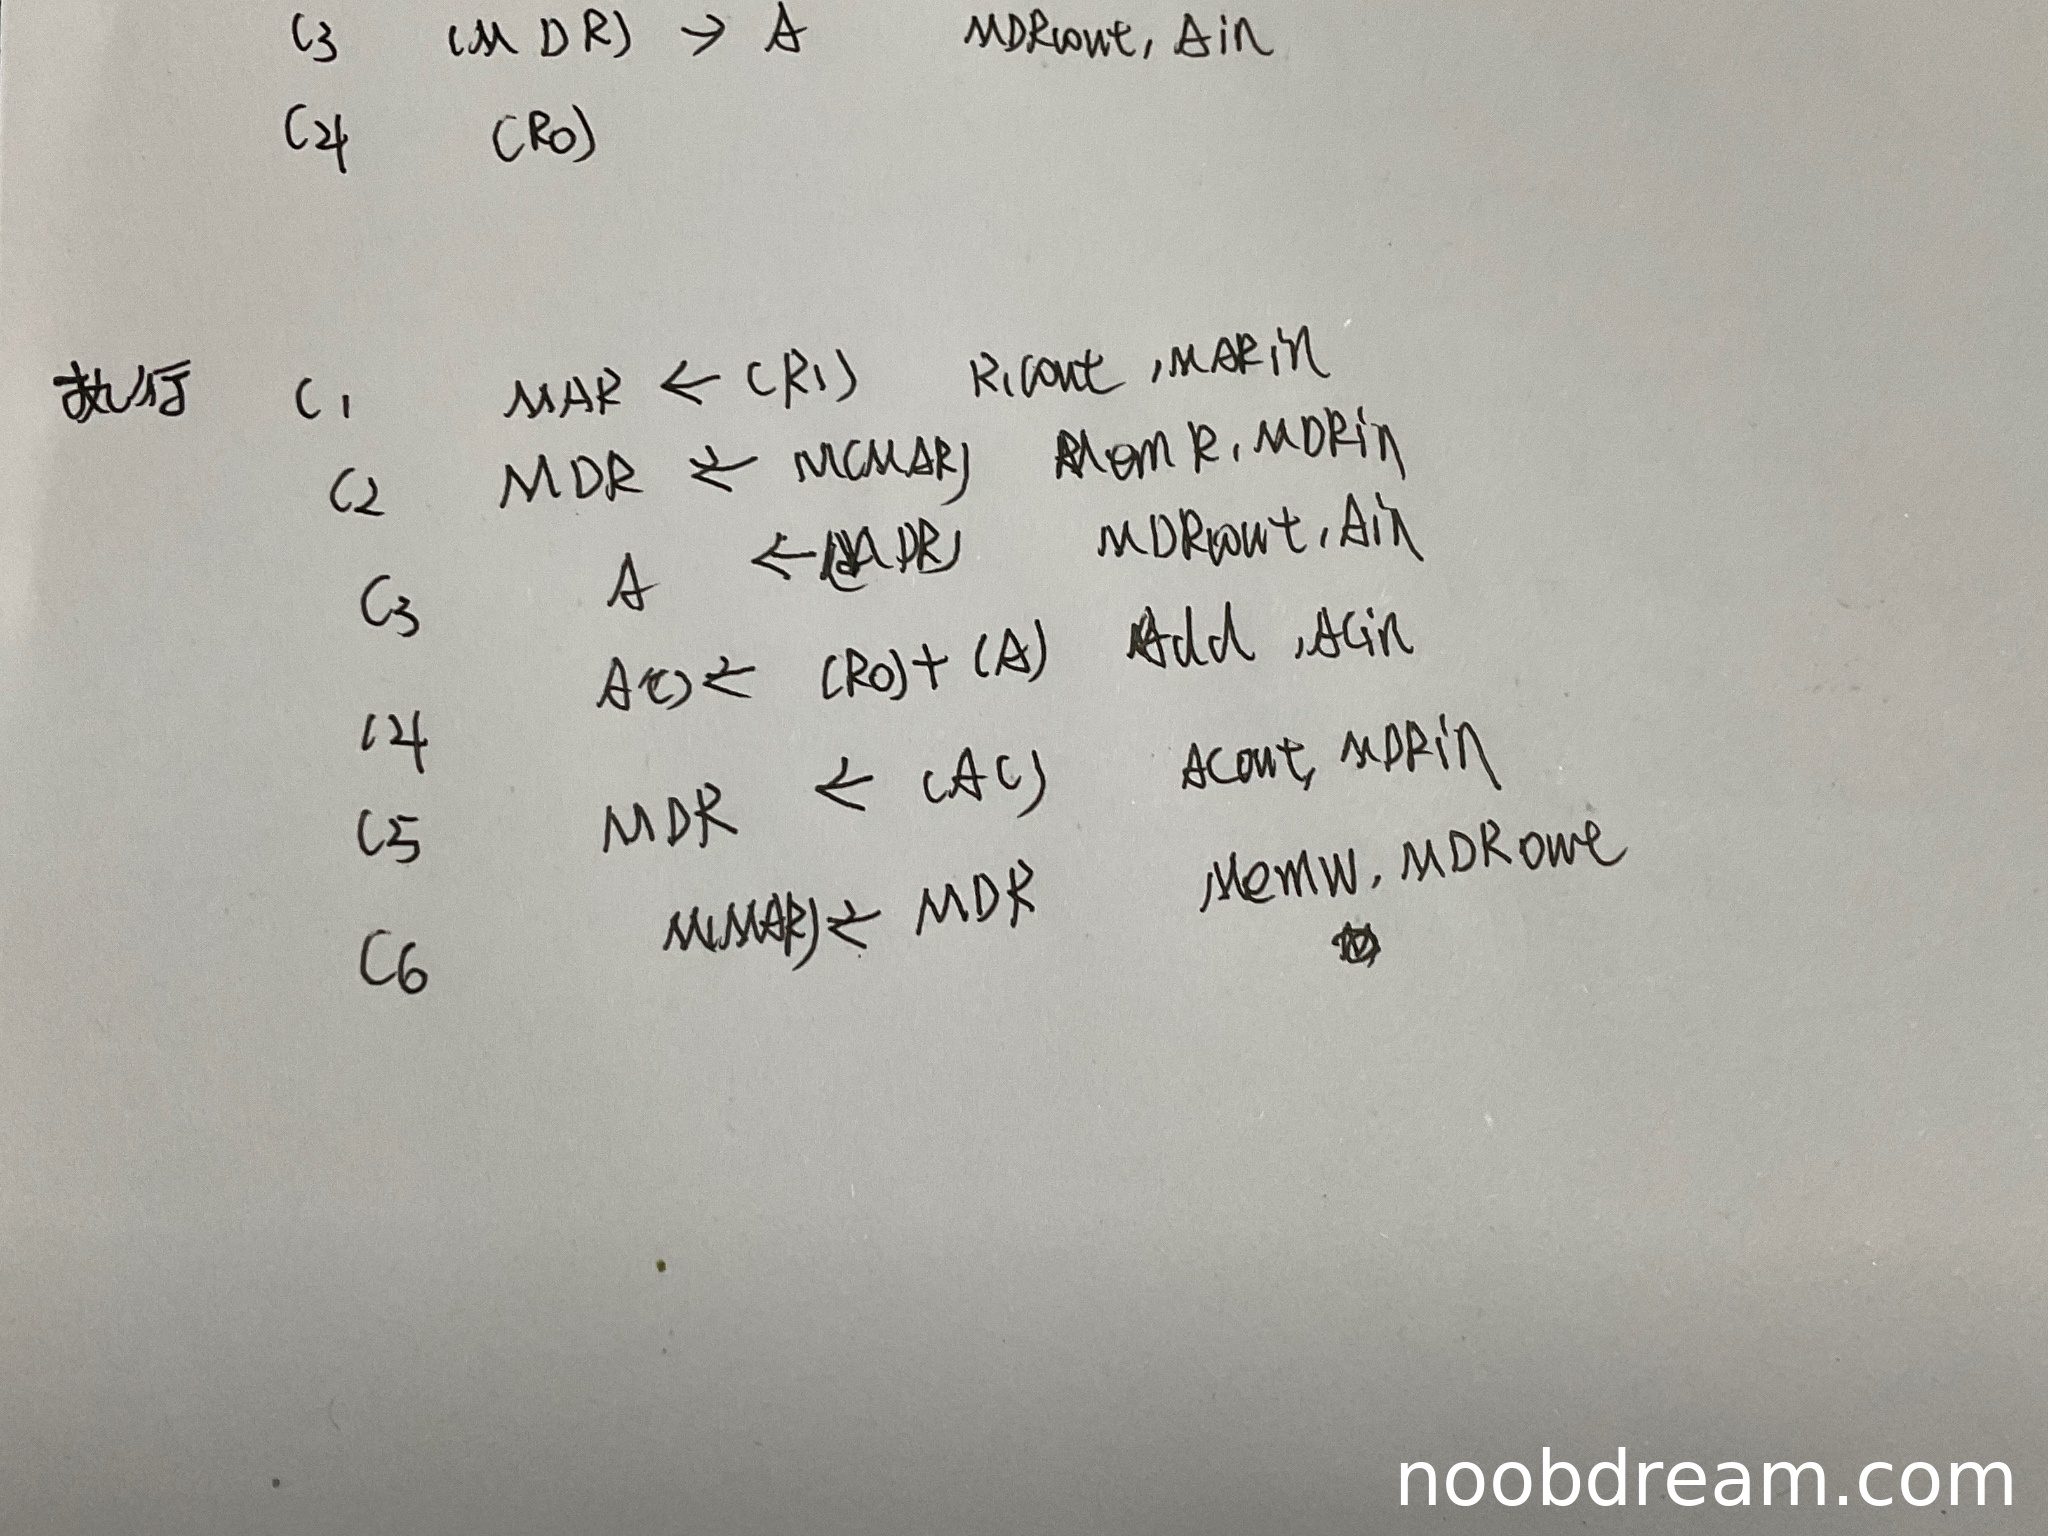 C3 (MDR) → A MDRout, Ain
C4 (R0)
执行 C1 MAR ← (R1) R1out, MARin
C2 MDR ← M(MAR) MemR, MDRin
C3 A ← (MDR) MDRout, Ain
C4 AC ← (R0)+(A) Add, ACin
C5 MDR ← (AC) ACout, MDRin
C6 M(MAR) ← MDR MemW, MDRout
noobdream.com